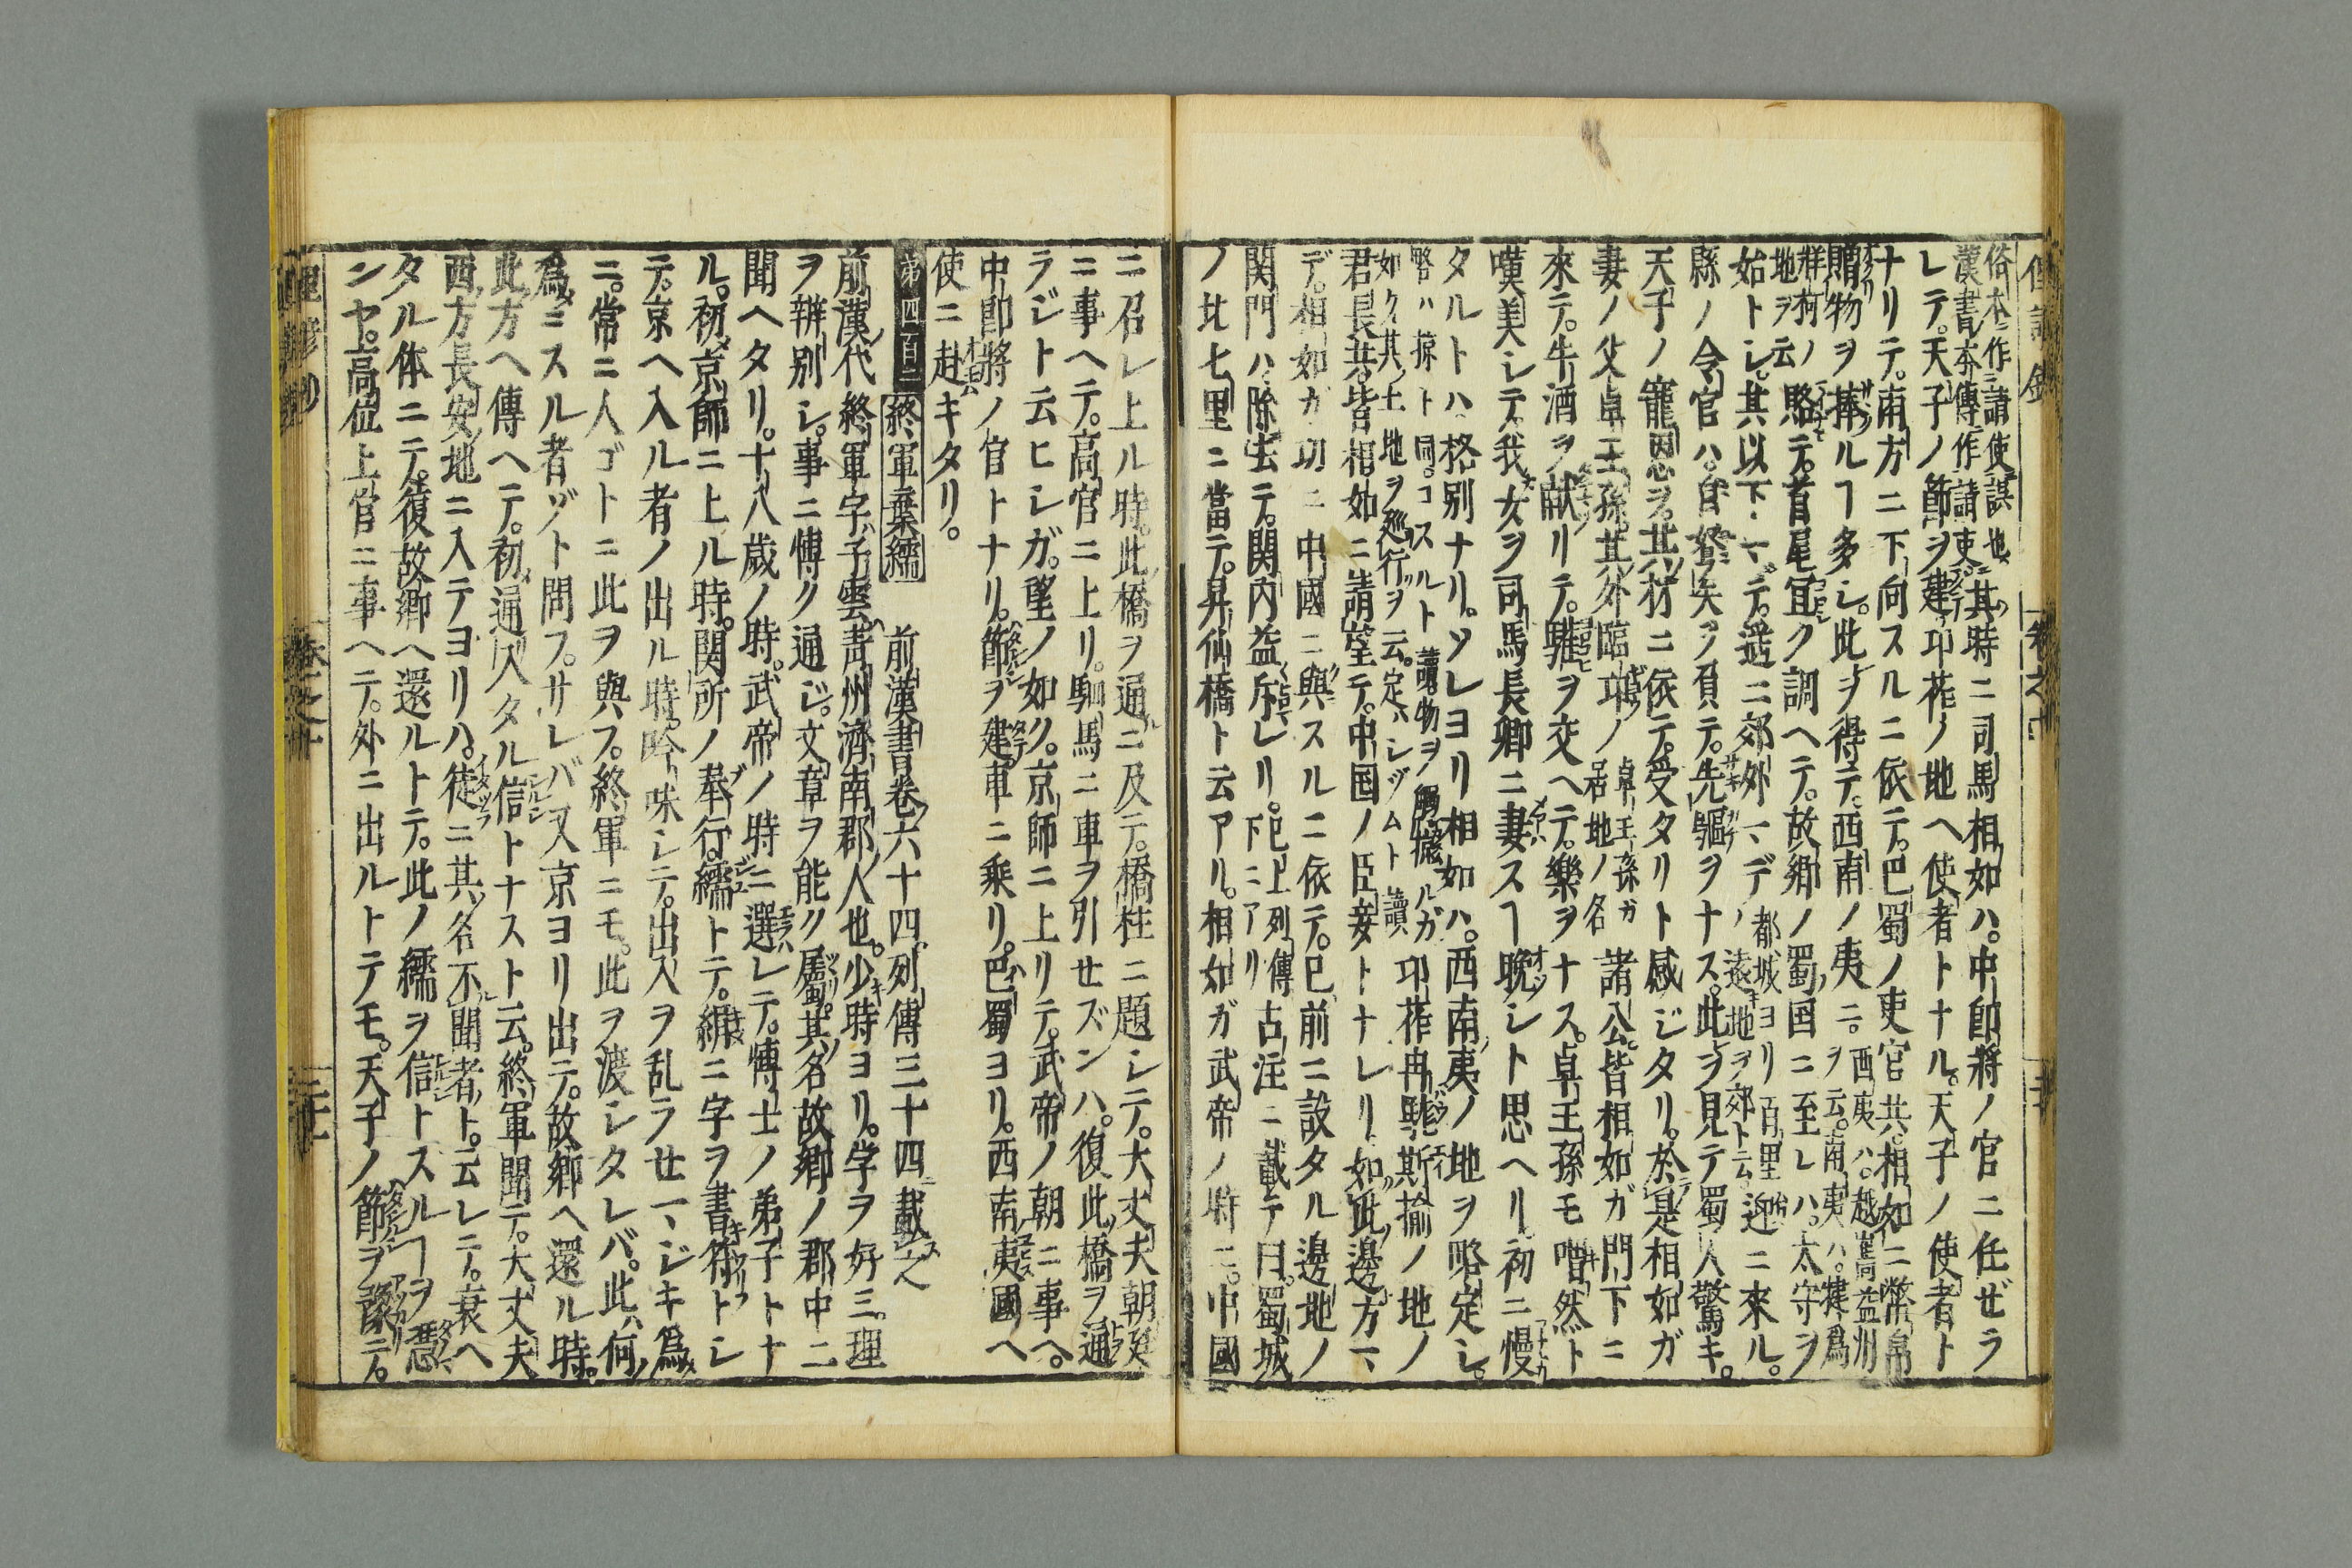 俗本ニ作ニ諸使誤也
漢書本傳ニ作諸吏ニ
其時ニ司馬相如ハ。中郎將ノ官ニ任ゼラ
レテ。天子ノ節ヲ建。卭莋ノ地ヘ使者トナル。天子ノ使者ト
ナリテ。南方ニ下向スルニ依テ。巴蜀ノ吏官共。相如ニ幣帛
贈物ヲ捧ルヿ多シ。此ヲ得テ。西南ノ夷ニ。
西夷ハ。越嶲益州
ヲ云。南夷ハ。犍爲
牂柯ノ
地ヲ云
賂テ。首尾宜ク調ヘテ。故鄉ノ蜀国ニ至レハ。太守ヲ
始トシ。其以下マデ。遥ニ郊外マデ
都城ヨリ百里
遠キ地ヲ郊ト云
迎ニ來ル。
縣ノ令官ハ。自弩矢ヲ負テ。先驅ヲナス。此ヲ見テ蜀人驚キ。
天子ノ寵恩ヲ。其材ニ依テ。受タリト感ジタリ。於是相如ガ
妻ノ父卓王孫。其外臨卭ノ
卓王孫ガ
居地ノ名
諸公。皆相如ガ門下ニ
來テ。牛酒ヲ献リテ。驩ヲ交ヘテ。樂ヲナス。卓王孫モ喟然ト
嘆美シテ。我女ヲ司馬長卿ニ妻スヿ晩シト思ヘリ。初ニ慢
タルトハ格別ナリ。ソレヨリ相如ハ。西南夷ノ地ヲ略定シ。
略ハ掠ト同。コスルト讀。物ヲ
如ク其土地ヲ巡行ヲ云。定ハシヅムト讀
卭莋冉駹斯揄ノ地ノ
君長共。皆相如ニ請望テ。中国ノ臣妾トナレリ。如此邊方マ
デ。相如ガ功ニ中國ニ與スルニ依テ。已前ニ設タル邊地ノ
関門ハ。除去テ。関内益斥レリ。
已上列傳
下ニアリ
古注ニ載テ曰。蜀城
ノ北七里ニ當テ。昇仙橋ト云アリ。相如ガ武帝ノ時ニ。中國
ニ召レ上ル時。此橋ヲ通ニ及テ。橋柱ニ題シテ。大丈夫朝廷
ニ事ヘテ。高官ニ上リ。駟馬ニ車ヲ引セズンハ。復此橋ヲ通
ラジト云ヒシガ。望ノ如ク。京師ニ上リテ。武帝ノ朝ニ事ヘ。
中郎將ノ官トナリ。節ヲ建車ニ乘リ。巴蜀ヨリ。西南夷國ヘ
使ニ赴キタリ。
第四百二 終軍棄繻 前漢書卷六十四列傳三十四載之
前漢代終軍字子雲。靑州濟南郡人也。少時ヨリ。学ヲ好ミ。理
ヲ辨別シ。事ニ博ク通ジ。文章ヲ能ク屬。其名故鄉ノ郡中ニ
聞ヘタリ。十八歳ノ時。武帝ノ時ニ選レテ。博士ノ弟子トナ
ル。初京師ニ上ル時。関所ノ奉行。繻トテ。絹ニ字ヲ書符トシ
テ。京ヘ入ル者ノ出ル時。吟味シテ。出入ヲ乱ラセマジキ爲
ニ。常ニ人ゴトニ此ヲ與フ。終軍ニモ。此ヲ渡シタレバ。此ハ何ノ
爲ニスル者ゾト問フ。サレバ又京ヨリ出テ。故鄉ヘ還ル時。
此方ヘ傳ヘテ。初通入タル信トナスト云。終軍聞テ。大丈夫
西方長安ノ地ニ入テヨリハ。徒ニ其名不聞者ト云レテ。衰ヘ
タル体ニテ。復故鄉ヘ還ルトテ。此ノ繻ヲ信トスルヿヲ憑
ンヤ。高位上官ニ事ヘテ。外ニ出ルトテモ。天子ノ節ヲ豫テ。